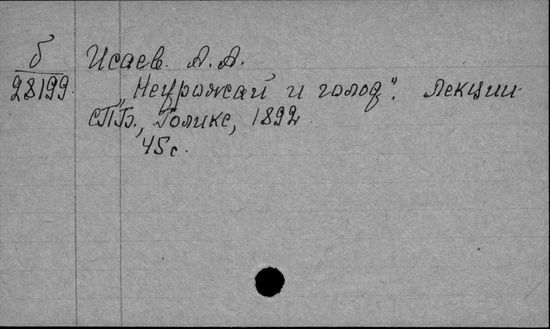 б Исаев. А. А.
28199. „Неурожай и голод". Лекции.
СПБ., Голике, 1892.
45 с.